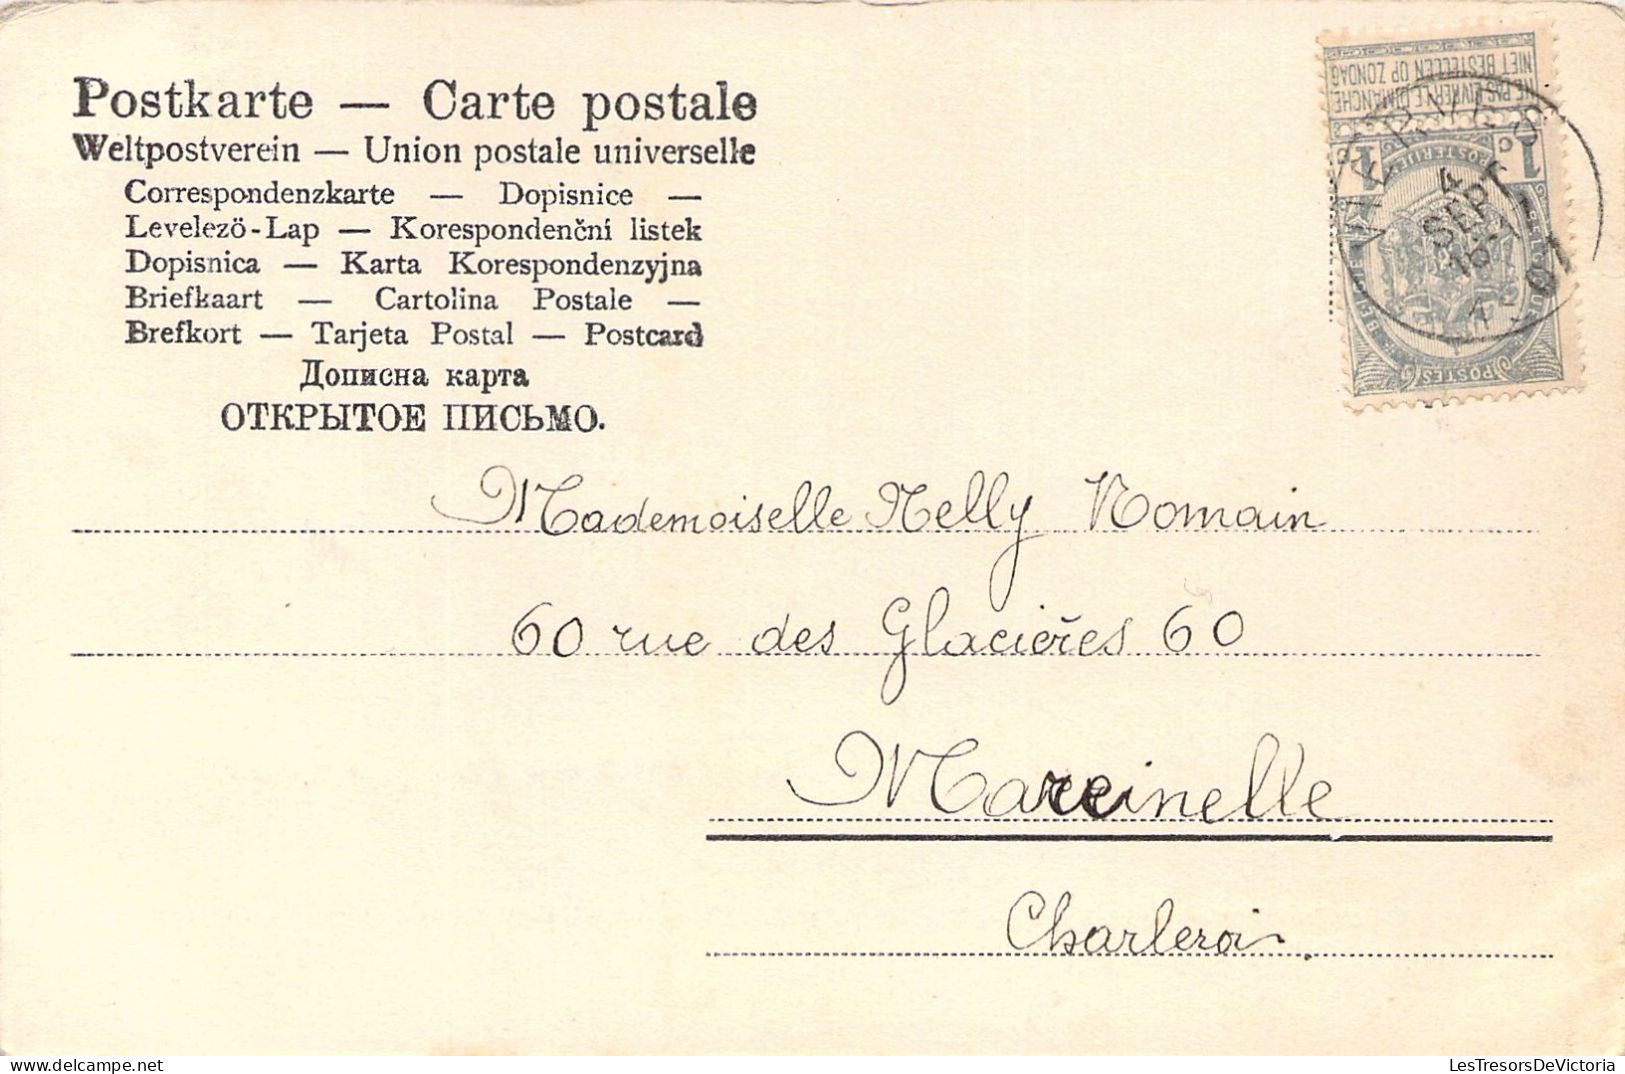 Postkarte — Carte postale
Weltpostverein — Union postale universelle
Correspondenzkarte — Dopisnice —
Levelezö-Lap — Korespondenční listek
Dopisnica — Karta Korespondenzyjna
Briefkaart — Cartolina Postale —
Brefkort — Tarjeta Postal — Postcard
Дописна карта
ОТКРЫТОЕ ПИСЬМО.
NIET BESTELLEN OP ZONDAG
NE PAS LIVRER LE DIMANCHE
1 1
POSTERIJEN
BELGIE BELGIQUE
POSTES
4
SEPT
07
Mademoiselle Nelly Romain
60 rue des Glacières 60
Marcinelle
Charleroi
LesTresorsDeVictoria